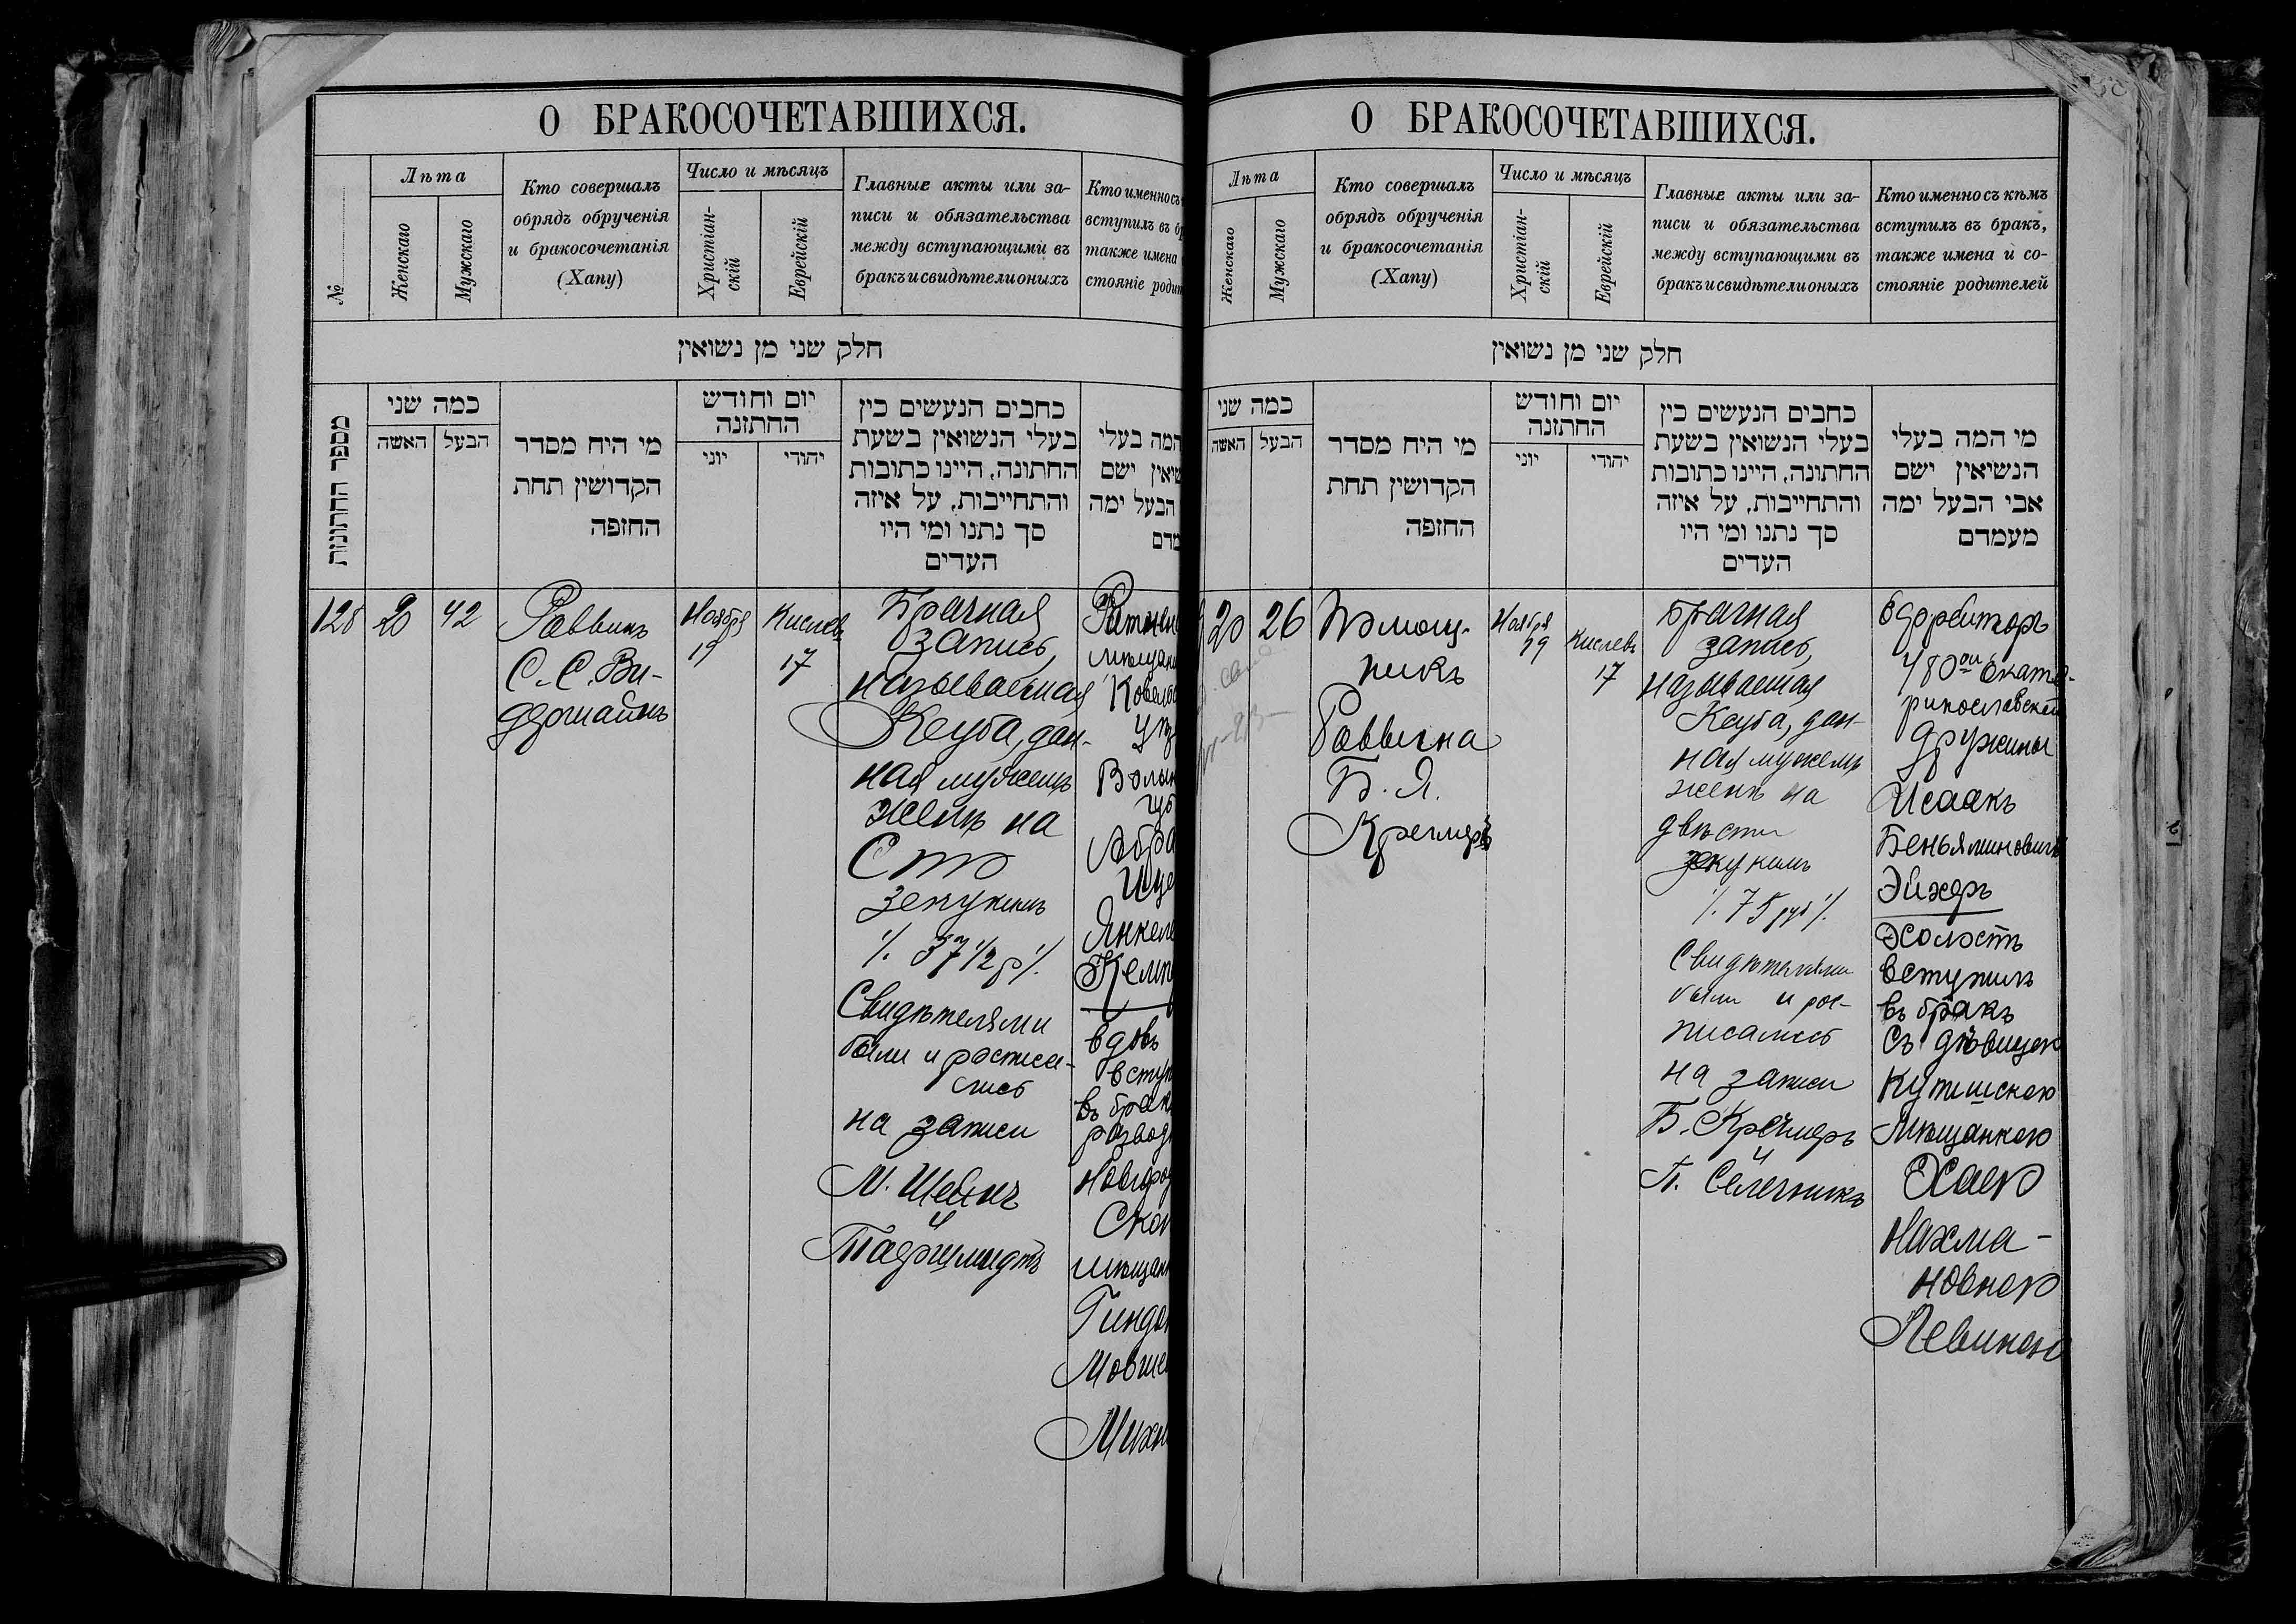 О БРАКОСОЧЕТАВШИХСЯ.
№
Лѣта
Женскаго
Мужскаго
Кто совершалъ
обрядъ обрученія
и бракосочетанія
(Хапу)
Число и мѣсяцъ
Христіан-
скій
Еврейскій
Главные акты или за-
писи и обязательства
между вступающими въ
бракъ и свидѣтели оныхъ
Кто именно съ
вступилъ въ бр
также имена
стояніе роди
חלק שני מן נשואין
מספר החתונות
כמה שני
האשה
הבעל
מי היח מסדר
הקדושין תחת
החזפה
יום וחודש
החתזנה
יוני
יהודי
כחבים הנעשים כין
בעלי הנשואין בשעת
החתונה, היינו כתובות
והתחייבות, על איזה
סך נתנו ומי היו
העדים
המה בעלי
שיאין ישם
הבעל ימה
מדם
128
20
42
Раввинъ
С. С. Ви-
дергайнъ
Ноября
19
Кислевъ
17
Брачная
запись,
называемая
Кеуба, дан-
ная мужемъ
женѣ на
Сто
зекукимъ
/. 37 1/2 р/.
Свидѣтелями
были и росписа-
лись
на записи
М. Шейнъ
мѣщани
Ковель
уѣз
Волын
губ
Абра
Ице
Янкеле
вдовъ
вступ
въ брак
развод
Новгород
мѣщан
Мовше
О БРАКОСОЧЕТАВШИХСЯ.
Лѣта
Женскаго
Мужскаго
Кто совершалъ
обрядъ обрученія
и бракосочетанія
(Хапу)
Число и мѣсяцъ
Христіан-
скій
Еврейскій
Главные акты или за-
писи и обязательства
между вступающими въ
бракъ и свидѣтели оныхъ
Кто именно съ кѣмъ
вступилъ въ бракъ,
также имена и со-
стояніе родителей
חלק שני מן נשואין
כמה שני
האשה
הבעל
מי היח מסדר
הקדושין תחת
החזפה
יום וחודש
החתזנה
יוני
יהודי
כחבים הנעשים כין
בעלי הנשואין בשעת
החתונה, היינו כתובות
והתחייבות, על איזה
סך נתנו ומי היו
העדים
מי המה בעלי
הנשיאין ישם
אבי הבעל ימה
מעמדם
20
26
Помощ-
никъ
Раввина
Б. Я.
Кремеръ
Ноября
19
Кислевъ
17
Брачная
запись,
называемая
Кеуба, дан-
ная мужемъ
женѣ на
двѣсти
зекукимъ
/. 75 руб /.
Свидѣтелями
были и рос-
писались
на записи
Б. Кремеръ
П. Селечникъ
Ефрейторъ
480ой Екате-
ринославской
дружины
Исаакъ
Беньяминовичъ
Эйхеръ
Холостъ
вступилъ
въ бракъ
съ дѣвицею
Кутишскою
мѣщанкою
Хаею
Нахма-
новною
Левиною